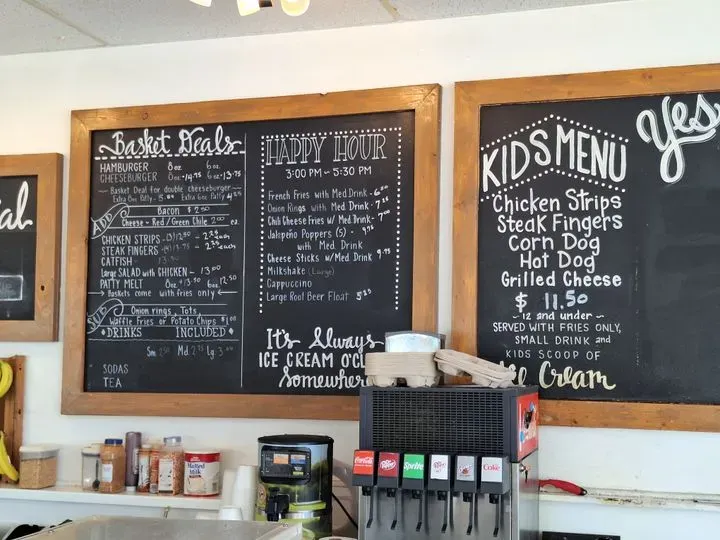 al
Basket Deals
HAMBURGER 8oz 6oz
CHEESEBURGER 8oz -14.75 6oz -13.75
~ Basket Deal for double cheeseburger ~
Extra 8oz Patty - 5. Extra 6oz Patty 4.
ADD
Bacon $2.50
Cheese - Red/Green Chile 2.00
CHICKEN STRIPS each
STEAK FINGERS each
CATFISH 13.50
Large SALAD with CHICKEN - 13.00
PATTY MELT 8oz - 13.50 6oz 12.50
Baskets come with fries only
SUB
Onion rings, Tots,
Waffle Fries or Potato Chips $1.00
DRINKS INCLUDED
Sm. Md. Lg.
SODAS
TEA
HAPPY HOUR
3:00 PM - 5:30 PM
French Fries with Med Drink -
Onion Rings with Med Drink -
Chili Cheese Fries w/ Med Drink -
Jalapeño Poppers (5) -
with Med Drink
Cheese Sticks w/Med Drink
Milkshake (Large)
Cappuccino
Large Root Beer Float
It's Always
ICE CREAM O'CL
Somewhere
KIDS MENU
Chicken Strips
Steak Fingers
Corn Dog
Hot Dog
Grilled Cheese
$ 11.50
~ 12 and under ~
SERVED WITH FRIES ONLY,
SMALL DRINK and
KIDS SCOOP OF
Ice Cream
Yes
Malted
Milk
Coca-Cola
Dr Pepper
Sprite
Coke